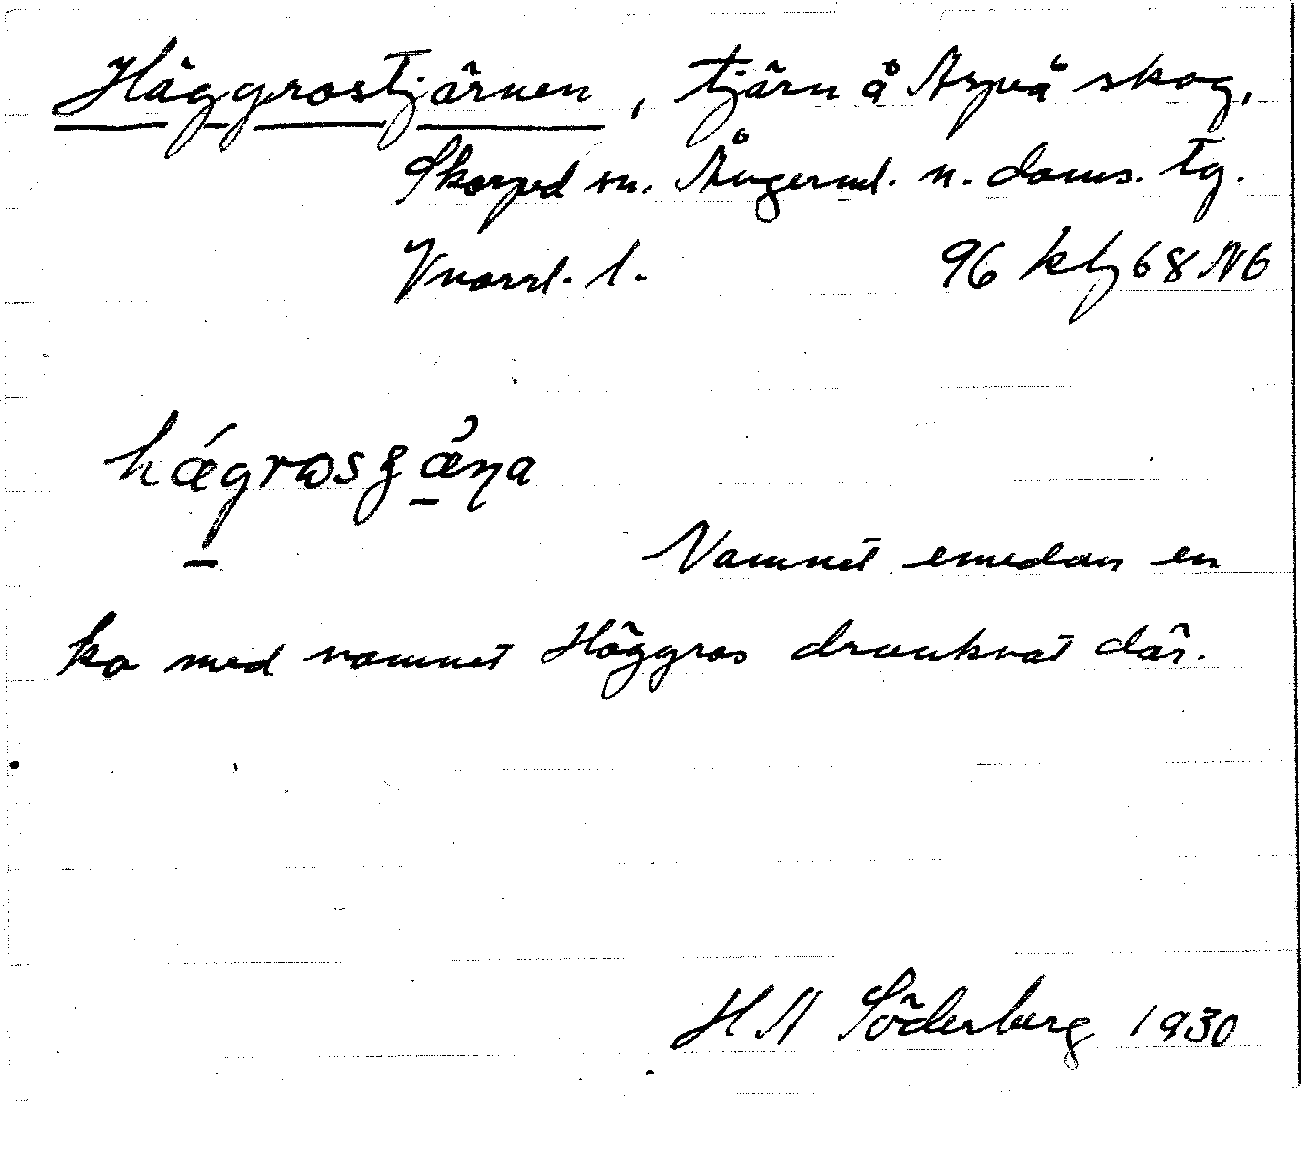 Häggrostjärnen, tjärn å Aspeå skog,
Skorped sn. Ångerml. n. doms. tg.
Vnorrl. l. 96 kbl 68 NÖ
Namnet emedan en
ko med namnet Häggros drunknat där.
H A Söderberg 1930